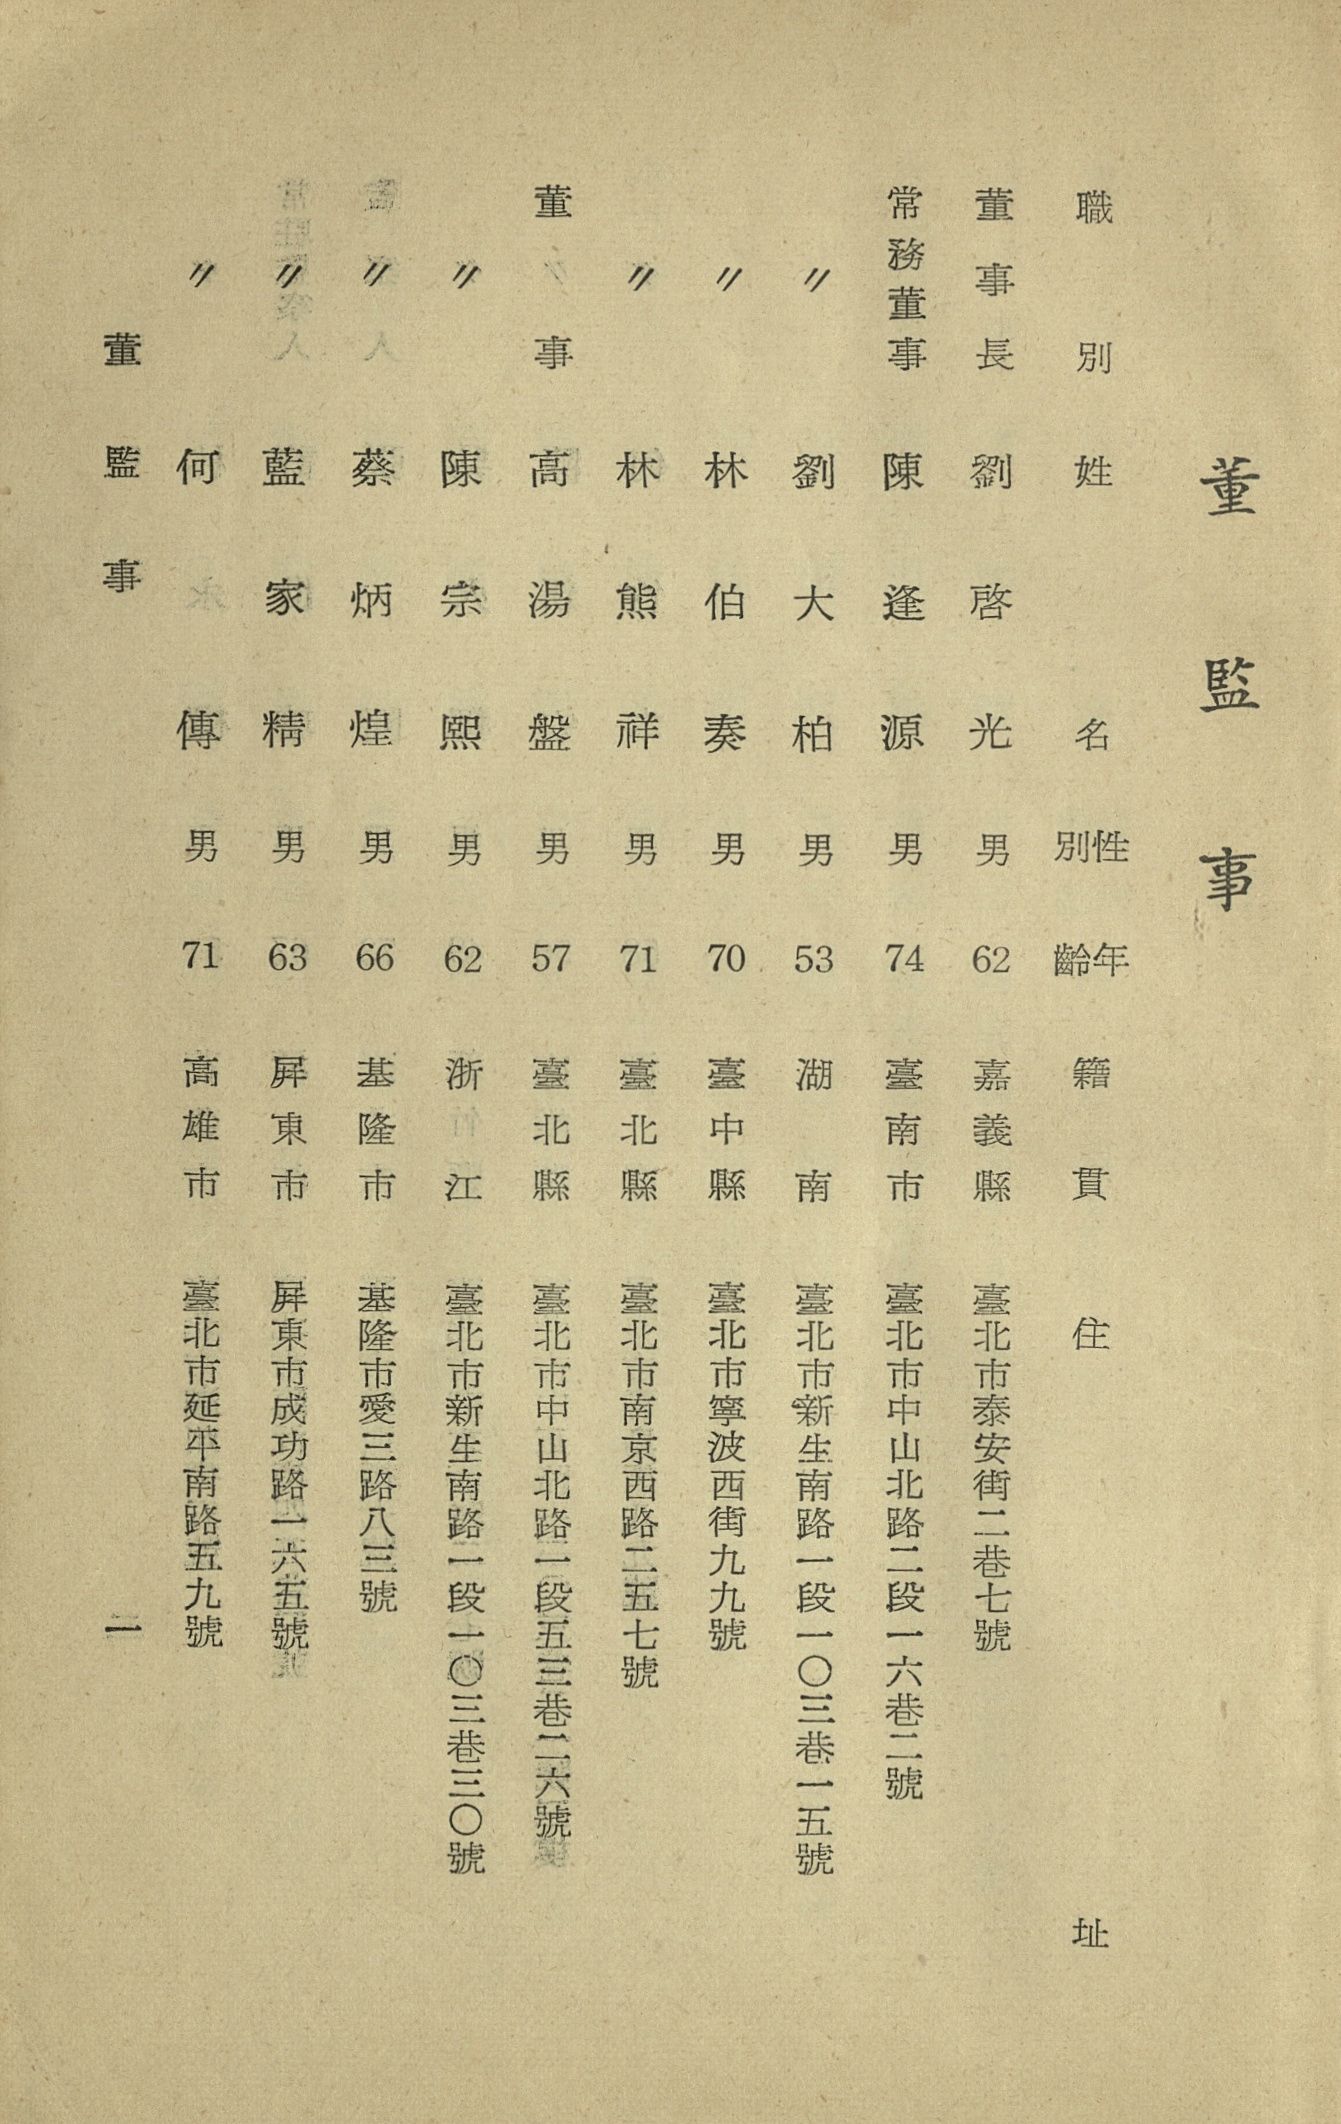 董監事
職別 姓名 性別 年齡 籍貫 住址
董事長 劉啓光 男 62 嘉義縣 臺北市泰安街二巷七號
常務董事 陳逢源 男 74 臺南市 臺北市中山北路二段一六巷二號
〃 劉大柏 男 53 湖南 臺北市新生南路一段一〇三巷一五號
〃 林伯奏 男 70 臺中縣 臺北市寧波西街九九號
〃 林熊祥 男 71 臺北縣 臺北市南京西路二五七號
董事 高湯盤 男 57 臺北縣 臺北市中山北路一段五三巷二六號
〃 陳宗熙 男 62 浙江 臺北市新生南路一段一〇三巷三〇號
〃 蔡炳煌 男 66 基隆市 基隆市愛三路八三號
〃 藍家精 男 63 屛東市 屛東市成功路一六五號
〃 何傳 男 71 高雄市 臺北市延平南路五九號
董監事 一